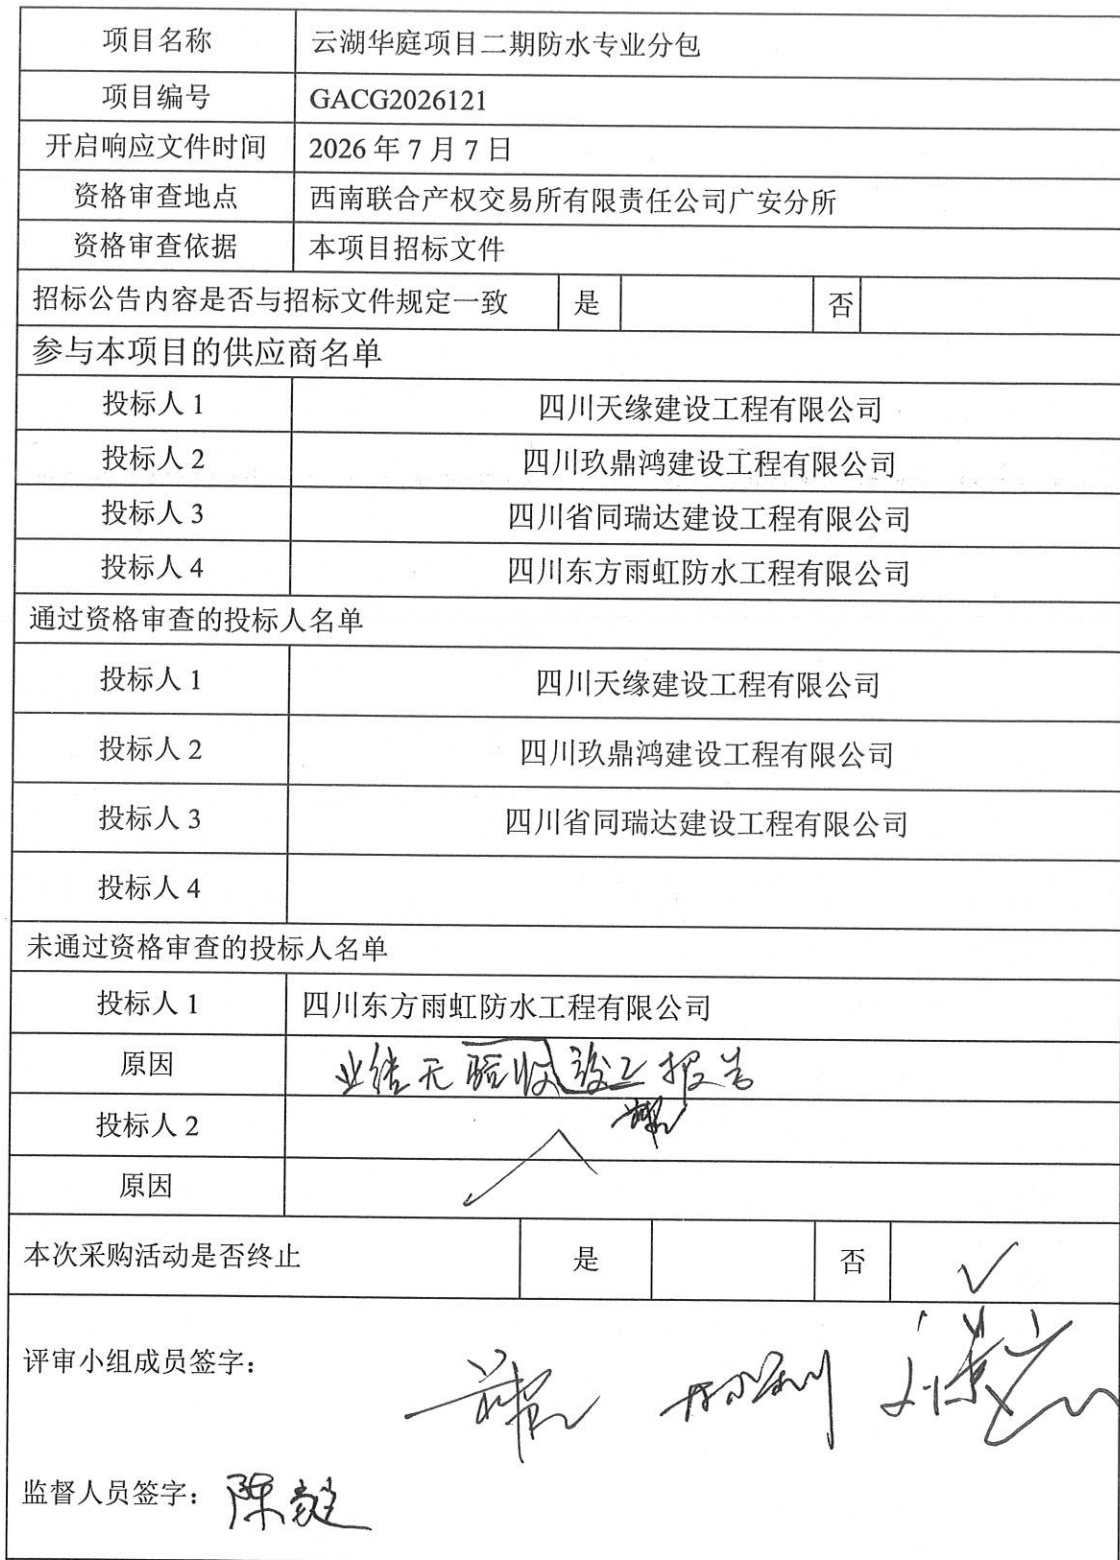 项目名称 云湖华庭项目二期防水专业分包
项目编号 GACG2026121
开启响应文件时间 2026年7月7日
资格审查地点 西南联合产权交易所有限责任公司广安分所
资格审查依据 本项目招标文件
招标公告内容是否与招标文件规定一致 是 否
参与本项目的供应商名单
投标人1 四川天缘建设工程有限公司
投标人2 四川玖鼎鸿建设工程有限公司
投标人3 四川省同瑞达建设工程有限公司
投标人4 四川东方雨虹防水工程有限公司
通过资格审查的投标人名单
投标人1 四川天缘建设工程有限公司
投标人2 四川玖鼎鸿建设工程有限公司
投标人3 四川省同瑞达建设工程有限公司
投标人4
未通过资格审查的投标人名单
投标人1 四川东方雨虹防水工程有限公司
原因 业绩无验收竣工报告
投标人2
原因
本次采购活动是否终止 是 否 ✓
评审小组成员签字：
监督人员签字： 陈